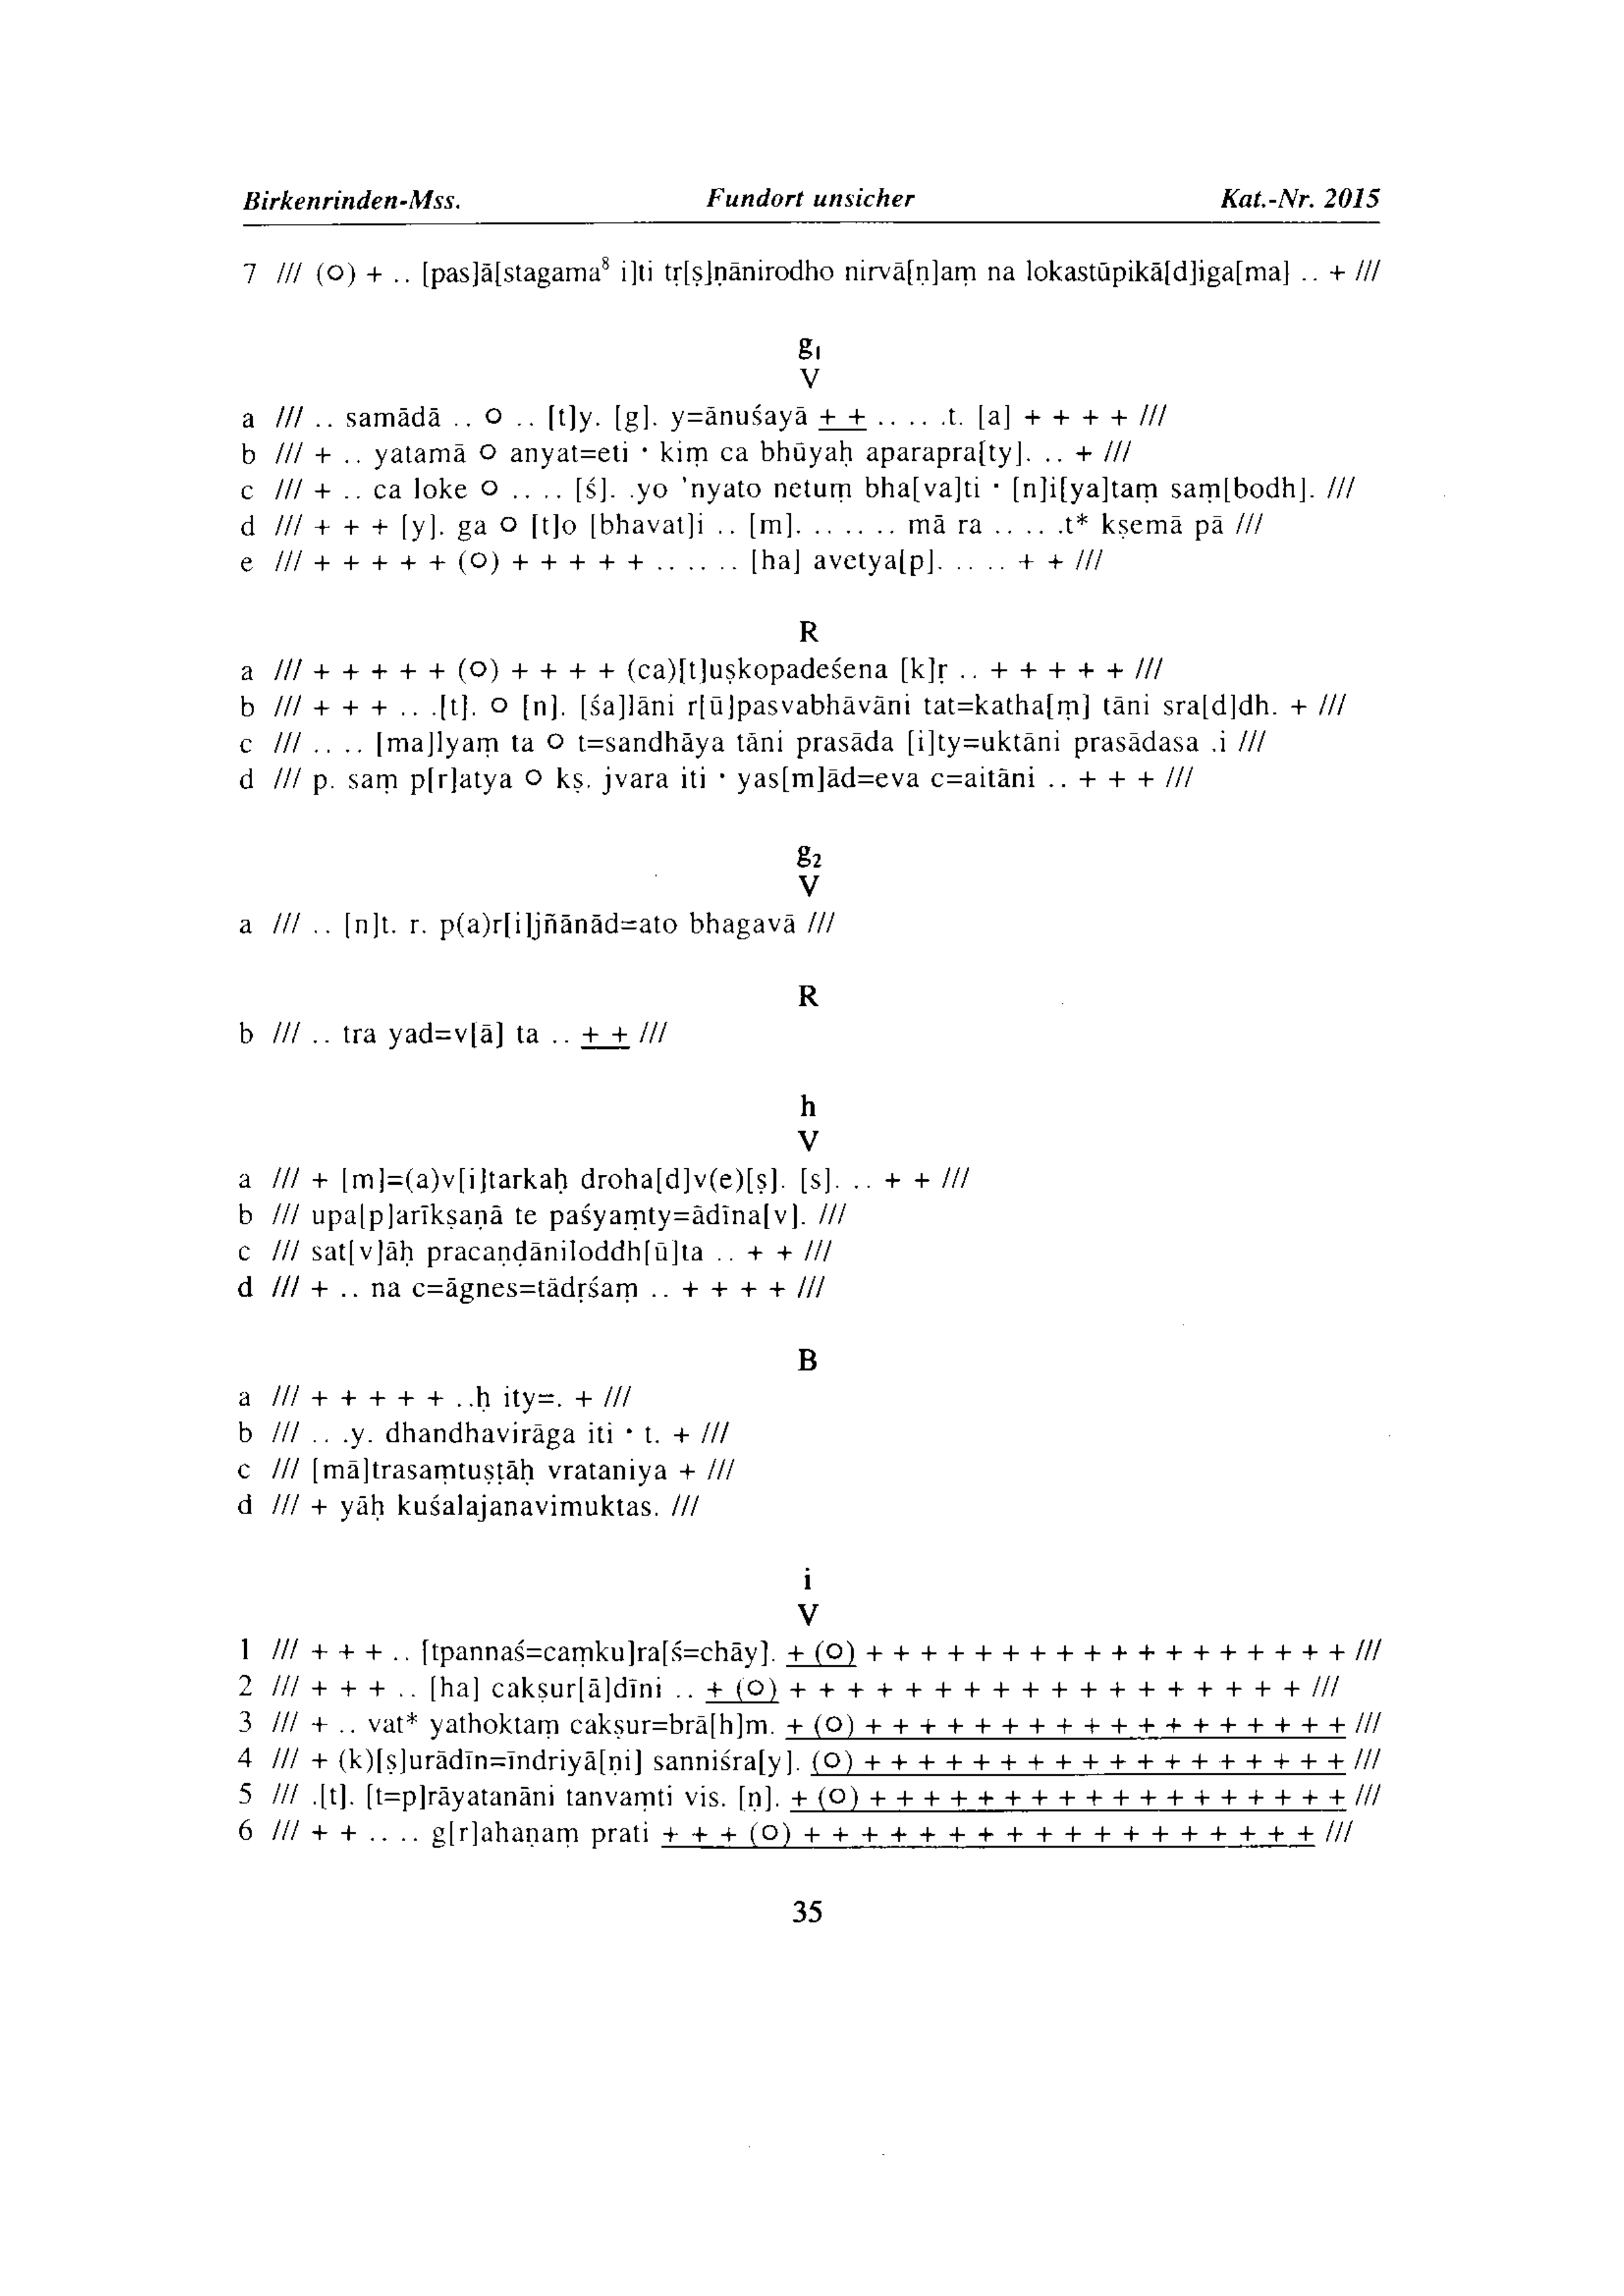 Birkenrinden-Mss. Fundort unsicher Kat.-Nr. 2015
7 /// (○) + .. [pas]ā[stagama⁸ i]ti tṛ[ṣ]ṇānirodho nirvā[ṇ]aṃ na lokastūpikā[d]iga[ma] .. + ///
g₁
V
a /// .. samādā .. ○ .. [t]y. [g]. y=ānuśayā + + .. .. .t. [a] + + + + ///
b /// + .. yatamā ○ anyat=eti • kiṃ ca bhūyaḥ aparapra[ty]. .. + ///
c /// + .. ca loke ○ .. .. [ś]. .yo 'nyato netuṃ bha[va]ti • [n]i[ya]taṃ saṃ[bodh]. ///
d /// + + + [y]. ga ○ [t]o [bhavat]i .. [m]. .. .. .. mā ra .. .. .t* kṣemā pā ///
e /// + + + + + (○) + + + + + .. .. .. [ha] avetya[p]. .. .. + + ///
R
a /// + + + + + (○) + + + + (ca)[t]uṣkopadeśena [k]ṛ .. + + + + + ///
b /// + + + .. .[t]. ○ [n]. [śa]lāni r[ū]pasvabhāvāni tat=katha[ṃ] tāni sra[d]dh. + ///
c /// .. .. [ma]lyaṃ ta ○ t=sandhāya tāni prasāda [i]ty=uktāni prasādasa .i ///
d /// p. saṃ p[r]atya ○ kṣ. jvara iti • yas[m]ād=eva c=aitāni .. + + + ///
g₂
V
a /// .. [n]t. r. p(a)r[i]jñānād=ato bhagavā ///
R
b /// .. tra yad=v[ā] ta .. + + ///
h
V
a /// + [m]=(a)v[i]tarkaḥ droha[d]v(e)[ṣ]. [s]. .. + + ///
b /// upa[p]arīkṣaṇā te paśyaṃty=ādīna[v]. ///
c /// sat[v]āḥ pracaṇḍāniloddh[ū]ta .. + + ///
d /// + .. na c=āgnes=tādṛśaṃ .. + + + + ///
B
a /// + + + + + ..ḥ ity=. + ///
b /// .. .y. dhandhavirāga iti • t. + ///
c /// [mā]trasaṃtuṣṭāḥ vrataniya + ///
d /// + yāḥ kuśalajanavimuktas. ///
i
V
1 /// + + + .. [tpannaś=caṃku]ra[ś=chāy]. + (○) + + + + + + + + + + + + + + + + + + ///
2 /// + + + .. [ha] cakṣur[ā]dīni .. + (○) + + + + + + + + + + + + + + + + + + ///
3 /// + .. vat* yathoktaṃ cakṣur=brā[h]m. + (○) + + + + + + + + + + + + + + + + + + ///
4 /// + (k)[ṣ]urādīn=īndriyā[ṇi] sanniśra[y]. (○) + + + + + + + + + + + + + + + + + + ///
5 /// .[t]. [t=p]rāyatanāni tanvaṃti vis. [ṇ]. + (○) + + + + + + + + + + + + + + + + + + ///
6 /// + + .. .. g[r]ahaṇaṃ prati + + + (○) + + + + + + + + + + + + + + + + + + ///
35